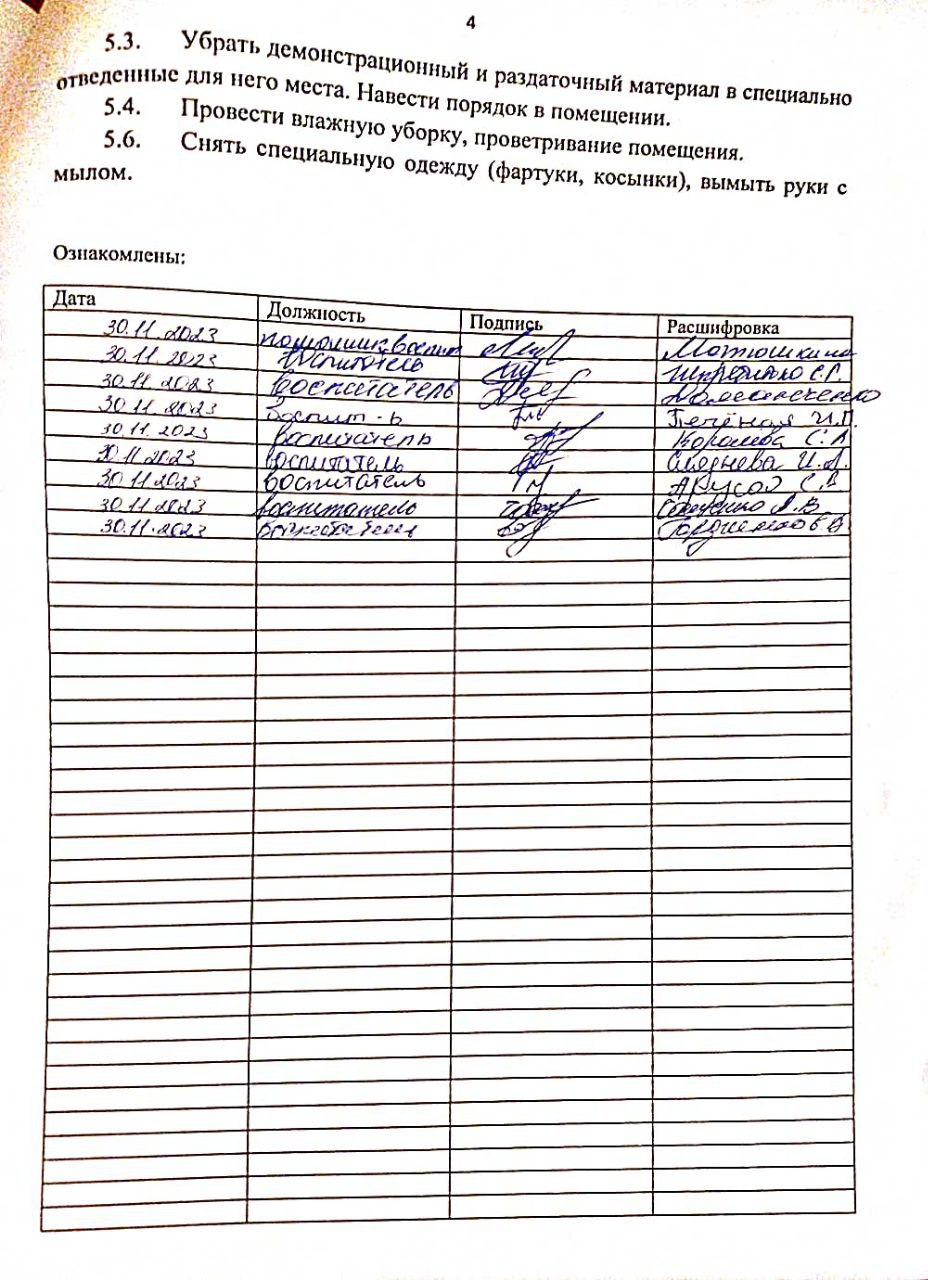 4
5.3. Убрать демонстрационный и раздаточный материал в специально
отведенные для него места. Навести порядок в помещении.
5.4. Провести влажную уборку, проветривание помещения.
5.6. Снять специальную одежду (фартуки, косынки), вымыть руки с
мылом.
Ознакомлены:
Дата Должность Подпись Расшифровка
30.11.2023 помощник воспит Матюшкина
30.11.2023 воспитатель
30.11.2023 воспитатель
30.11.2023 воспит-ь Печёная И.П.
30.11.2023 воспитатель Королёва С.А
30.11.2023 воспитатель И.А.
30.11.2023 воспитатель
30.11.2023 воспитатель А.В
30.11.2023 воспитатель